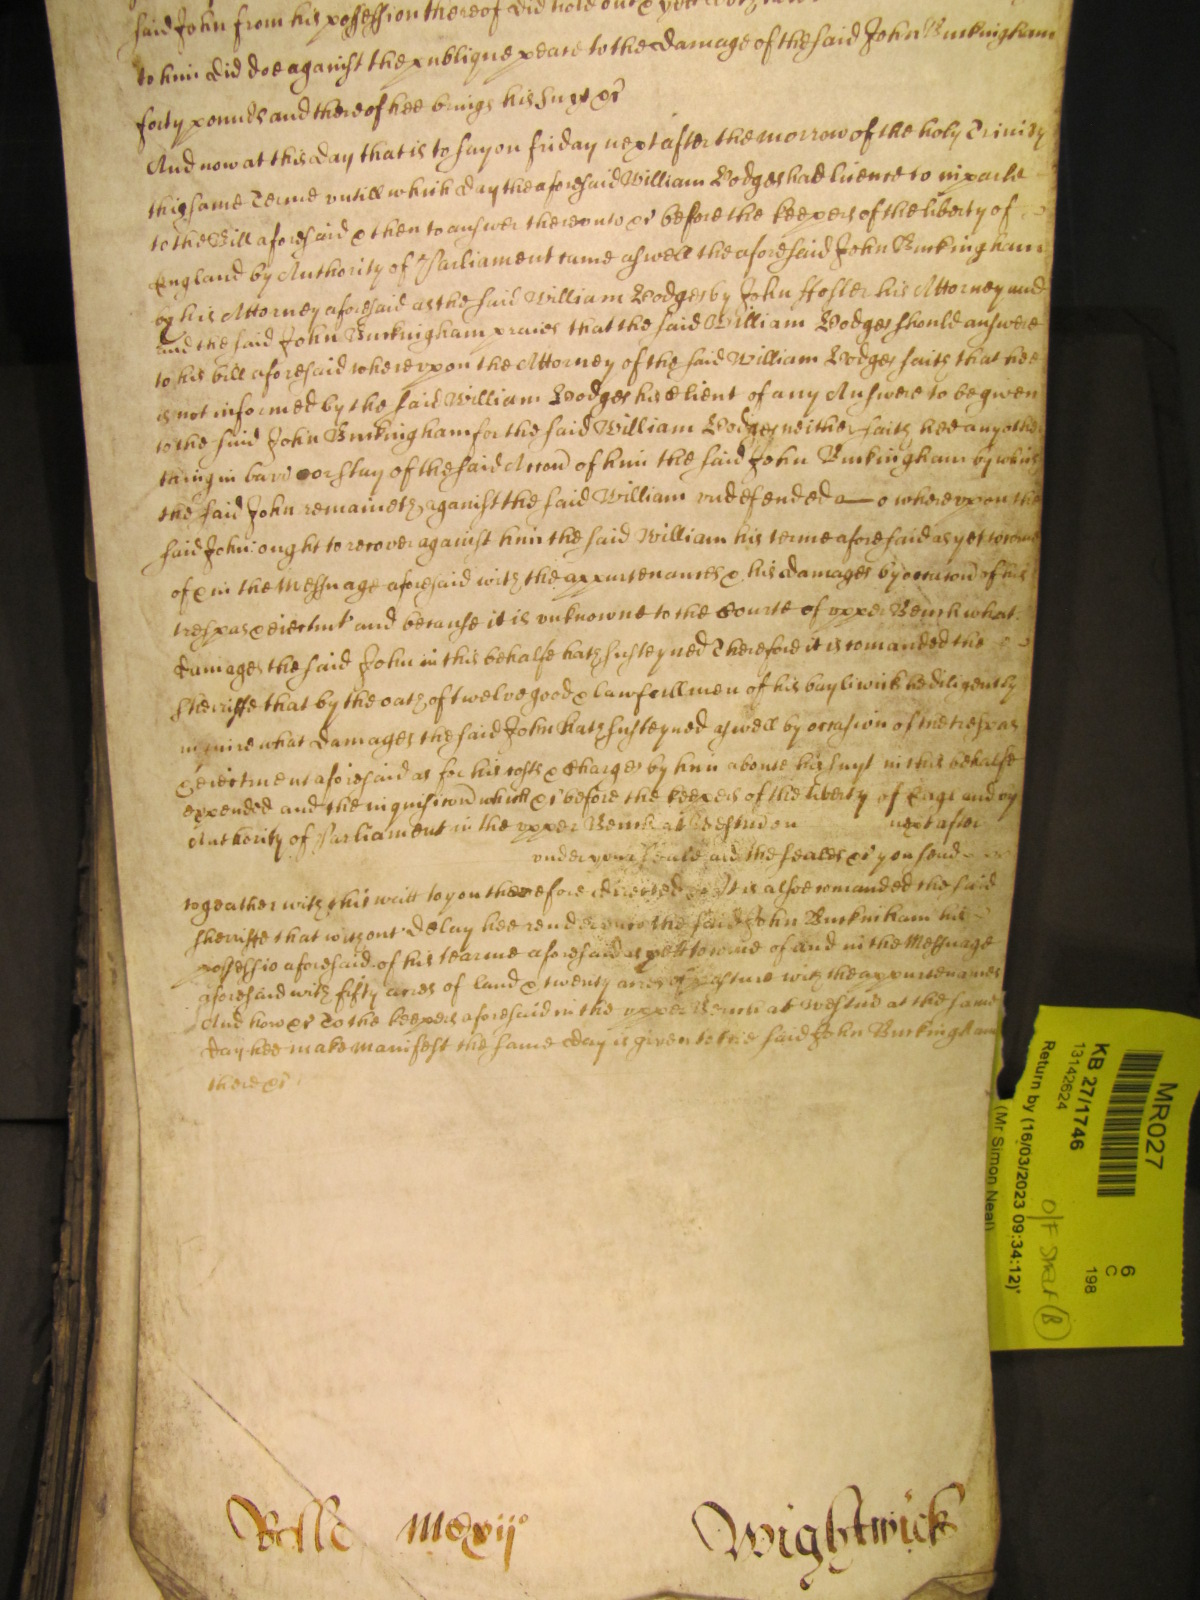 said John from his possession thereof did hold out & yett
to him did doe against the publique peace to the damage of the said John Buckingham
forty pounds and thereof hee brings his suyt &c
And now at this day that is to say on friday next after the morrow of the holy Trinity
this same Terme untill which day the aforesaid William Hodges had licence to imparle
to the Bill aforesaid & then to answer thereunto &c before the keepers of the liberty of
England by Authority of Parliament came aswell the aforesaid John Buckingham
by his Attorney aforesaid as the said William Hodges by John Hosler his Attorney and
and the said John Buckingham praies that the said William Hodges should answere
to his bill aforesaid whereupon the Attorney of the said William Hodges saith that hee
is not informed by the said William Hodges his Client of any Answere to be given
to the said John Buckingham for the said William Hodges neither saith hee any other
thing in barr or stay of the said Accon of him the said John Buckingham by which
the said John remaineth against the said William undefended whereupon the
said John ought to recover against him the said William his terme aforesaid as yet to come
of & in the Messuage aforesaid with the appurtenances & his damages by occasion of his
trespas & eiectmt and because it is unknowne to the Courte of upper Bench what
damages the said John in this behalfe hath susteyned Therefore it is comanded the
Sherriffe that by the oath of twelve good & lawfull men of his bayliwick he diligently
inquire what damages the said John hath susteyned aswell by occasion of the trespas
& eiectment aforesaid as for his costs & charges by him aboute his suyt in this behalfe
expended and the inquisicon which &c before the keepers of the liberty of Engl and by
Authority of Parliament in the upper Bench at Westm on next after
under your seale and the seales &c you send
togeather with this writt to you therefore directed It is alsoe comanded the said
Sherriffe that without delay hee render unto the said John Buckinham his
possessio aforesaid of his tearme aforesaid as yett to come of and in the Messuage
aforesaid with fifty acres of land & twenty acres of pasture with the appurtenances
And how &c To the keepers aforesaid in the upper Bench at Westm at the same
day hee make manifest the same day is given to the said John Buckingham
there &c
Rolle Mcxvijo Wightwick
MR027
KB 27/1746
13142624
Return by (16/03/2023 09:34:12)'
(Mr Simon Neal)
6
C
198
O/F Shelf (B)